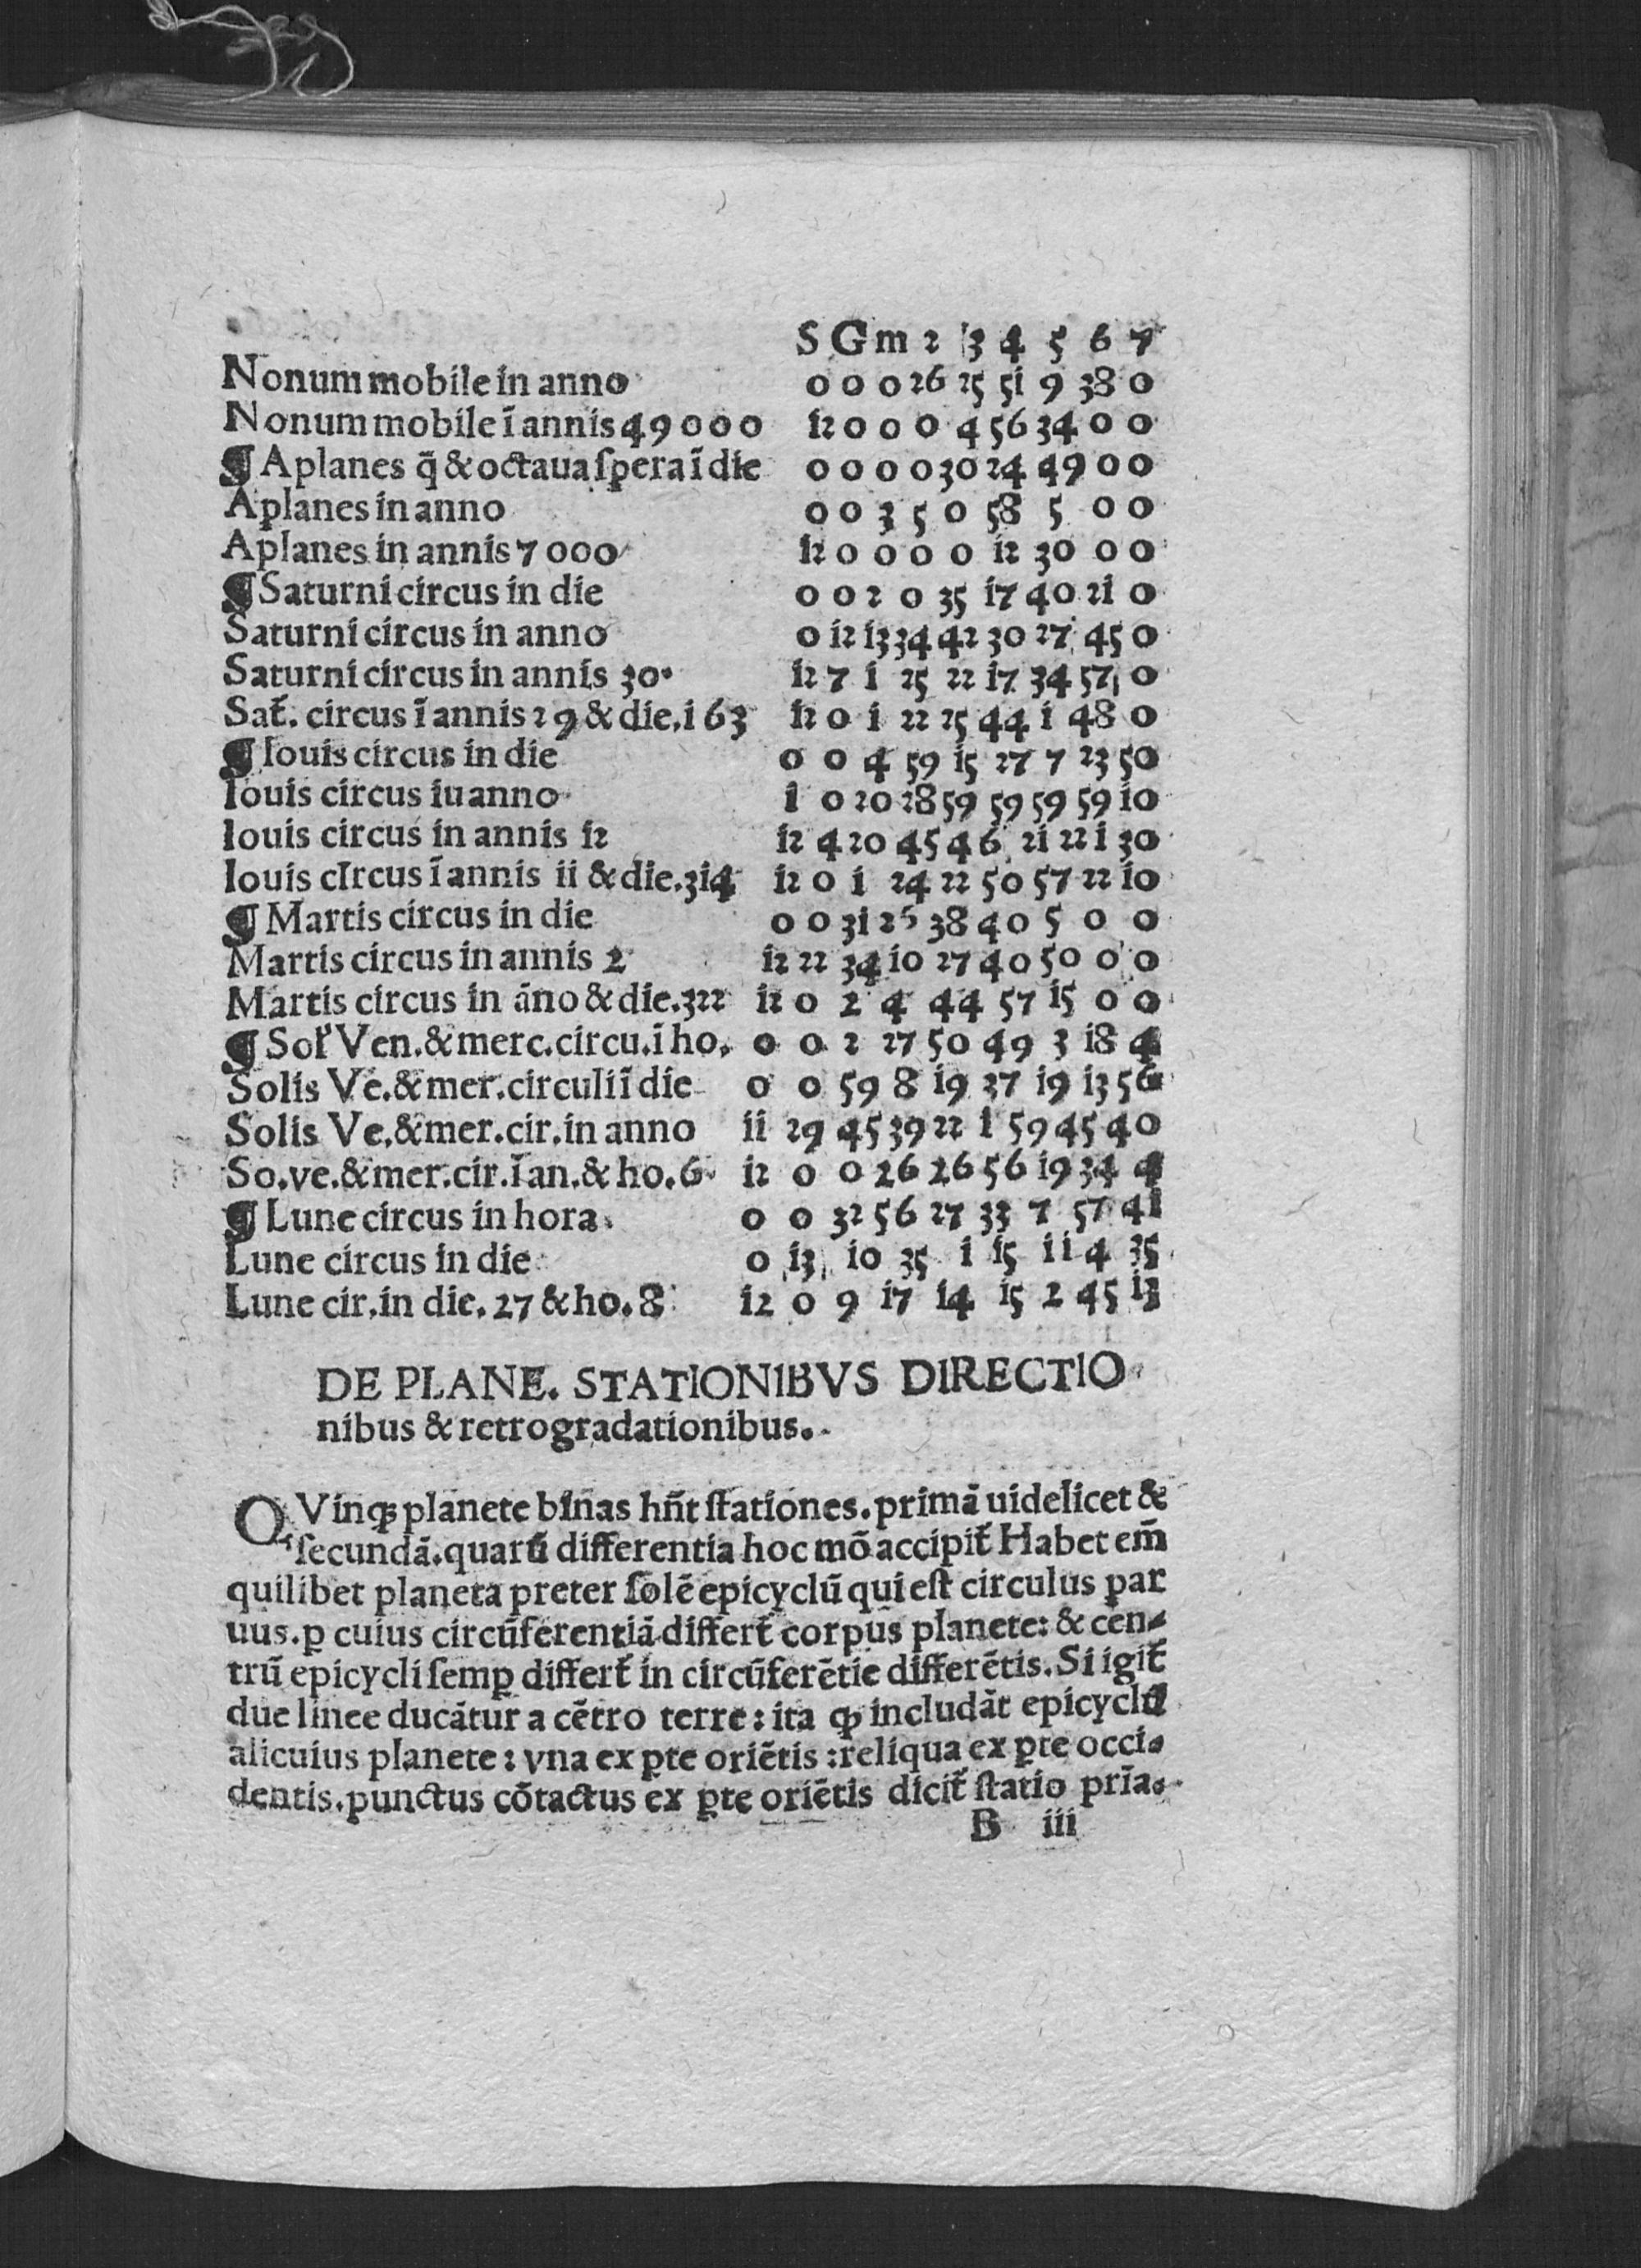 S G m 2 3 4 5 6 7
Nonum mobile in anno 0 0 0 26 25 51 9 38 0
Nonum mobile ī annis 49000 12 0 0 0 4 56 34 0 0
¶ Aplanes q̄ & octaua spera ī die 0 0 0 0 30 24 49 0 0
Aplanes in anno 0 0 3 5 0 58 5 0 0
Aplanes in annis 7000 12 0 0 0 0 12 30 0 0
¶ Saturni circus in die 0 0 2 0 35 17 40 21 0
Saturni circus in anno 0 12 13 34 42 30 27 45 0
Saturni circus in annis 30. 12 7 1 25 22 17 34 57 0
Sat̄. circus ī annis 29 & die. 163 12 0 1 22 25 44 1 48 0
¶ Iouis circus in die 0 0 4 59 15 27 7 23 50
Iouis circus iu anno 1 0 20 28 59 59 59 59 10
Iouis circus in annis 12 12 4 20 45 46 21 22 1 30
Iouis cIrcus ī annis 11 & die. 314 12 0 1 24 22 50 57 22 10
¶ Martis circus in die 0 0 31 26 38 40 5 0 0
Martis circus in annis 2 12 22 34 10 27 40 50 0 0
Martis circus in āno & die. 322 12 0 2 4 44 57 15 0 0
¶ Sol̄ Ven. & merc. circu. ī ho. 0 0 2 27 50 49 3 18 4
Solis Ve. & mer. circuli ī die 0 0 59 8 19 37 19 13 56
Solis Ve, & mer. cir. in anno 11 29 45 39 22 1 59 45 40
So. ve. & mer. cir. ī an. & ho. 6. 12 0 0 26 26 56 19 34 4
¶ Lune circus in hora. 0 0 32 56 27 33 7 57 41
Lune circus in die 0 13 10 35 1 15 11 4 35
Lune cir. in die. 27 & ho. 8 12 0 9 17 14 15 2 45 13
DE PLANE. STATIONIBVS DIRECTIO
nibus & retrogradationibus.
QVinqꝫ planete binas hn̄t stationes. primā uidelicet &
secundā. quarū differentia hoc mō accipit̄ Habet em̄
quilibet planeta preter solē epicyclū qui est circulus par
uus. ꝑ cuius circūferentiā differt̄ corpus planete: & cen-
trū epicycli semꝑ differt̄ in circūferētie differētis. Si igit̄
due linee ducātur a cētro terre: ita ꝙ includāt epicyclū
alicuius planete: vna ex ꝑte oriētis: reliqua ex ꝑte occi-
dentis. punctus cōtactus ex ꝑte oriētis dicit̄ statio prīa.
B iii